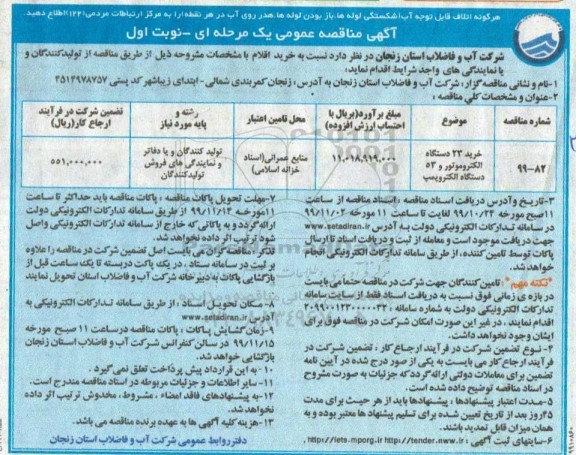 هرگونه اتلاف قابل توجه آب (شکستگی لوله ها، باز بودن لوله ها، هدر روی آب در هر نقطه) را به مرکز ارتباطات مردمی (۱۲۲) اطلاع دهید.
آگهی مناقصه عمومی یک مرحله ای -نوبت اول
شرکت آب و فاضلاب استان زنجان در نظر دارد نسبت به خرید اقلام با مشخصات مشروحه ذیل از طریق مناقصه از تولیدکنندگان و
یا نمایندگی های واجد شرایط اقدام نماید:
۱-نام و نشانی مناقصه گزار: شرکت آب و فاضلاب استان زنجان به آدرس: زنجان کمربندی شمالی- ابتدای زیباشهر کد پستی ۴۵۱۳۹۷۸۷۵۷
۲-عنوان و مشخصات کلی مناقصه:
شماره مناقصه
موضوع
مبلغ برآورد (بریال با احتساب ارزش افزوده)
محل تامین اعتبار
رشته و پایه مورد نیاز
تضمین شرکت در فرآیند ارجاع کار (ریال)
۹۹-۸۲
خرید ۲۳ دستگاه الکتروموتور و ۵۳ دستگاه الکتروپمپ
۱۱,۰۱۸,۹۱۹,۰۰۰
منابع عمرانی (اسناد خزانه اسلامی)
تولید کنندگان و یا دفاتر و نمایندگی های فروش تولیدکنندگان
۵۵۱,۰۰۰,۰۰۰
۳-تاریخ و آدرس دریافت اسناد مناقصه: اسناد مناقصه از ساعت
۱۱ صبح مورخه ۹۹/۱۰/۲۳ لغایت تا ساعت ۱۱ مورخه ۹۹/۱۱/۰۲
در سامانه تدارکات الکترونیکی دولت به آدرس www.setadiran.ir
جهت دریافت موجود است و معامله از ثبت و دریافت اسناد تا ارسال
پاکات توسط تامین کننده، از طریق سامانه تدارکات الکترونیکی انجام
خواهد شد.
"نکته مهم": تامین کنندگان جهت شرکت در مناقصه حتما می بایست
در بازه ی زمانی فوق نسبت به دریافت اسناد فقط از سایت سامانه
تدارکات الکترونیکی دولت به شماره سامانه:
اقدام نمایند، در غیر این صورت امکان شرکت در مناقصه فوق برای
ایشان وجود نخواهد داشت.
۴-نوع تضمین شرکت در فرآیند ارجاع کار: تضمین شرکت در
فرآیند ارجاع کار می بایست به یکی از صور درج شده در آیین نامه
تضمین برای معاملات دولتی ارائه گردد که جزئیات به صورت مشروح
در اسناد مناقصه توضیح داده شده است.
۵-مدت اعتبار پیشنهادها: پیشنهادها باید از هر حیث برای مدت
۴۵ روز بعد از تاریخ تعیین شده برای تسلیم پیشنهاد ها معتبر بوده و به
همان میزان قابل تمدید باشند.
۶-سایتهای ثبت آگهی: http://iets.mporg.ir http://tender.nww.ir
۷-مهلت تحویل پاکات مناقصه: پاکات مناقصه باید حداکثر تا ساعت
۱۱ مورخه ۹۹/۱۱/۱۴ از طریق سامانه تدارکات الکترونیکی دولت
ارائه گردد و به پاکاتی که خارج از سامانه تدارکات الکترونیکی واصل
شود ترتیب اثر داده نخواهد شد.
تذکر: مناقصه گران می بایست اصل تضمین شرکت در مناقصه را علاوه
بر ثبت در سامانه ستاد، در یک پاکت دربسته تا یک ساعت قبل از
بازگشایی پاکات به دبیرخانه شرکت آب و فاضلاب استان تحویل نمایند
۸-مکان تحویل اسناد: از طریق سامانه تدارکات الکترونیکی به
آدرس www.setadiran.ir
۹-زمان گشایش پاکات: پاکات مناقصه در ساعت ۱۱ صبح مورخه
۹۹/۱۱/۱۵ در سالن کنفرانس شرکت آب و فاضلاب استان زنجان
بازگشایی خواهد شد.
۱۰-به این قرارداد پیش پرداخت تعلق نمی گیرد.
۱۱-سایر اطلاعات و جزئیات مربوطه در اسناد مناقصه مندرج است.
۱۲-به پیشنهادهای فاقد امضاء، مشروط، مخدوش ترتیب اثر داده
نخواهد شد.
۱۳-هزینه کلیه آگهی ها به عهده برنده مناقصه می باشد.
دفتر روابط عمومی شرکت آب و فاضلاب استان زنجان